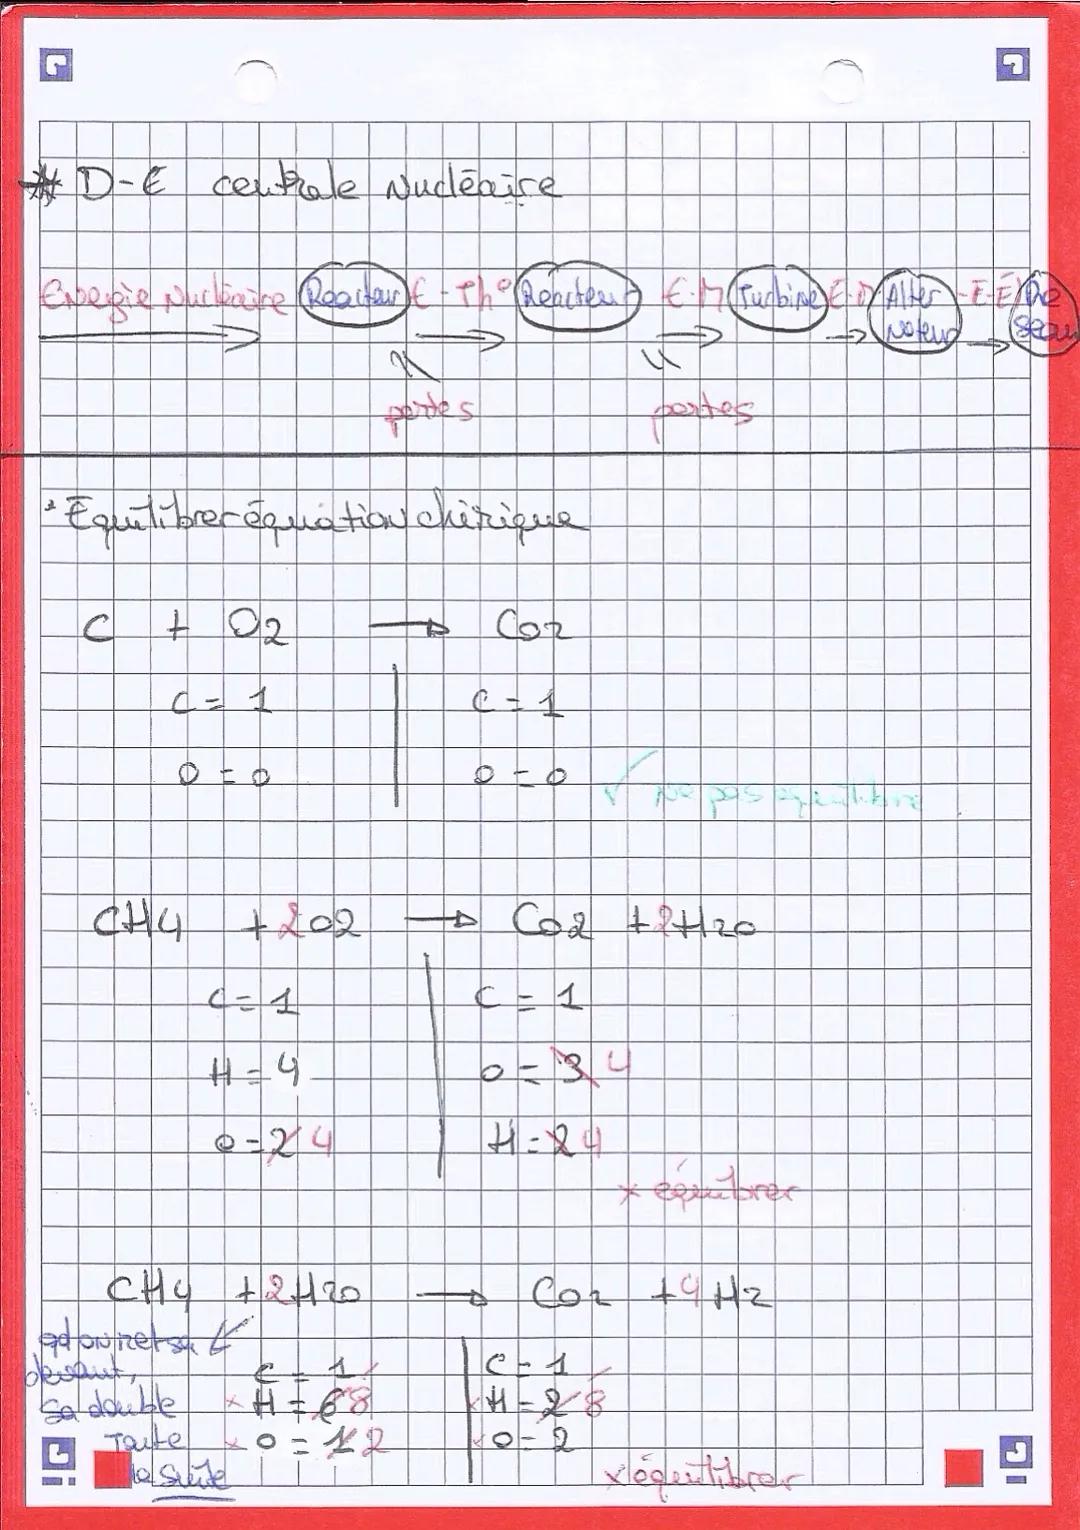 * D-E centrale Nucléaire
Energie Nucléaire Reacteur E-Th° Reacteur E.M Turbine E.M Alter -E-E Ré
nateur seau
pertes pertes
Equilibrer équation chimique
C + O2 → CO2
C = 1 C = 1
O = 0 O = 0 ✓ pas equilibre
CH4 + 2O2 → CO2 + 2H2O
C = 1 C = 1
H = 4 O = 3 4
O = 2 4 H = 2 4
× équibrer
CH4 + 2H2O → CO2 + 4H2
devant, C = 1 C = 1
sa double × H = 6 8 × H = 2 8
Toute × O = 1 2 × O = 2
la suite × équilibrer